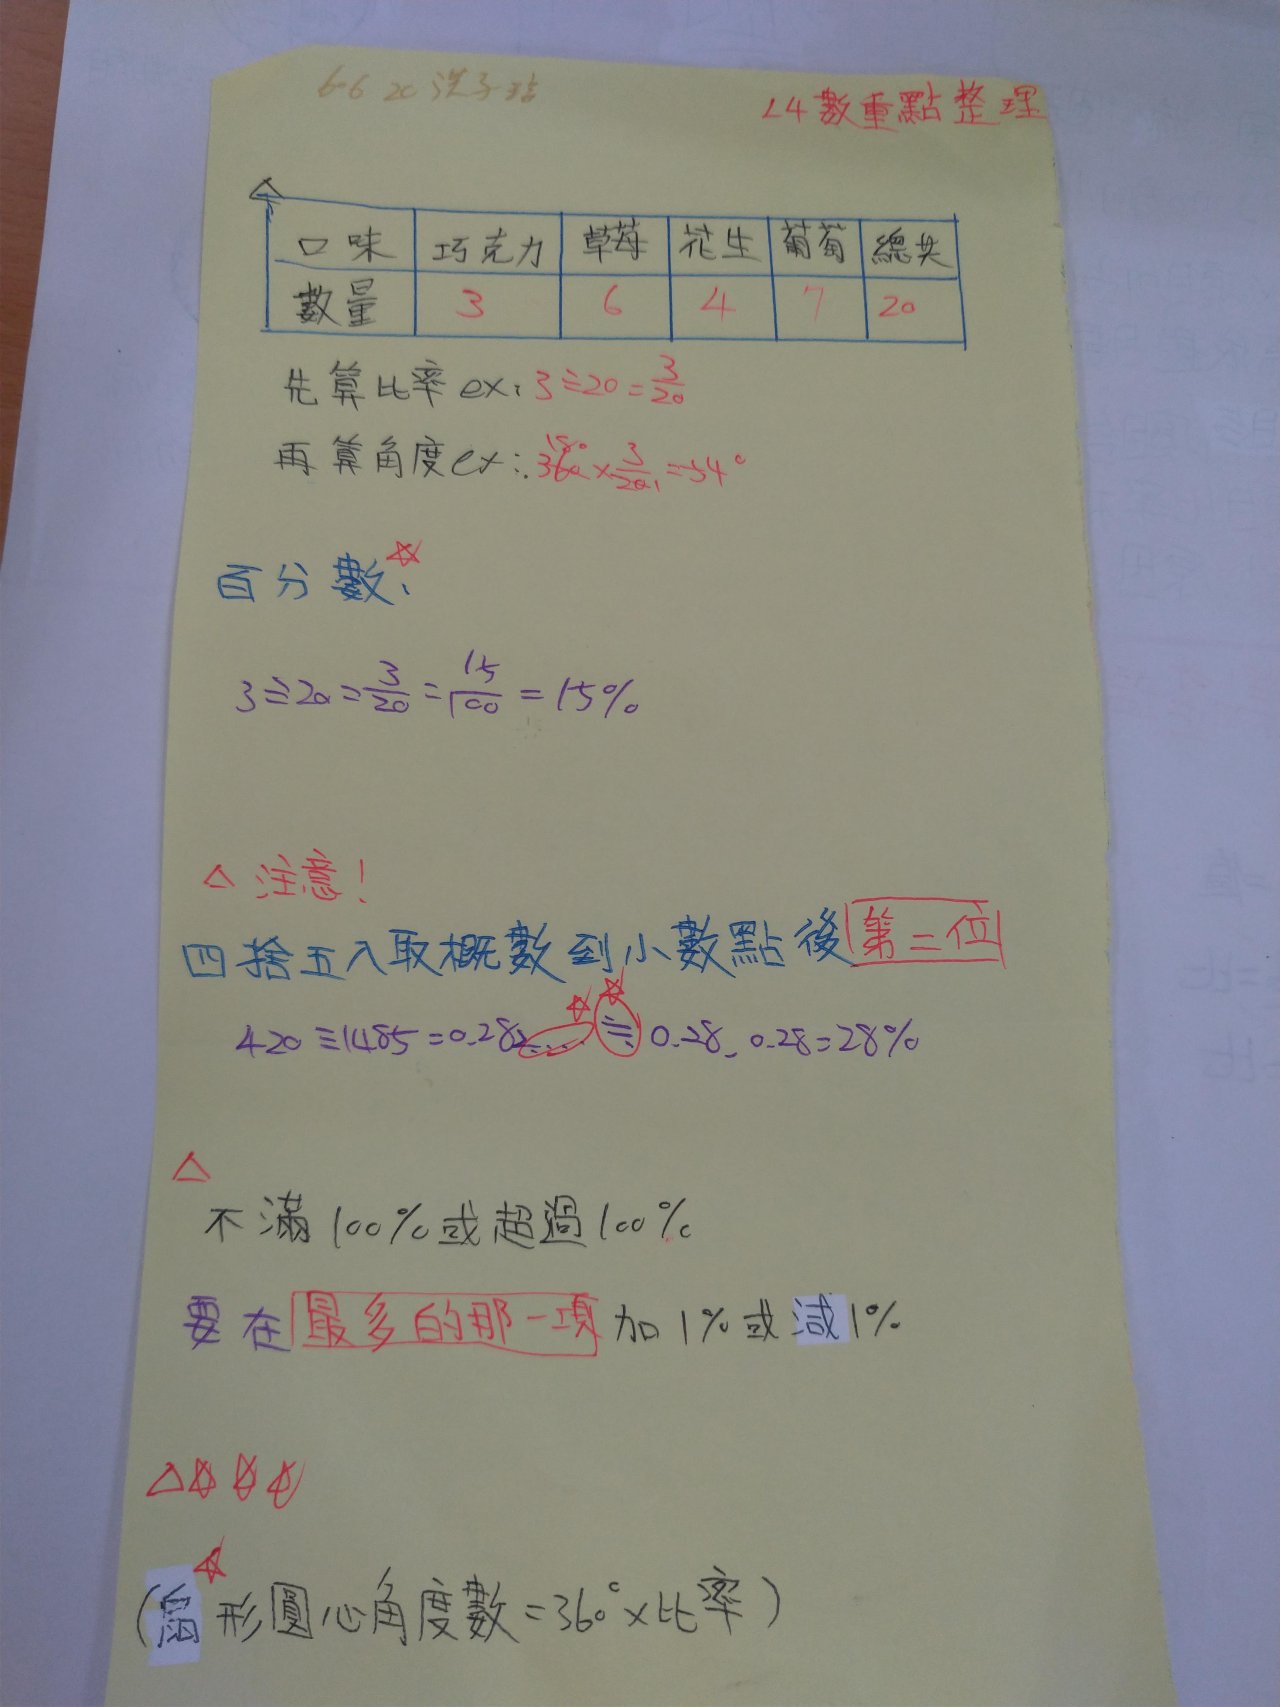 6-6 20
L4數重點整理
口味 巧克力 草莓 花生 葡萄 總共
數量 3 6 4 7 20
先算比率ex:3÷20=3/20
再算角度ex:360°×3/20=54°
18° 1
百分數:
3÷20=3/20=15/100=15%
△注意!
四捨五入取概數到小數點後第二位
420÷1485=0.282...≒0.28, 0.28=28%
△
不滿100%或超過100%
要在最多的那一項加1%或減1%
△☆☆☆
(扇形圓心角度數=360°×比率)